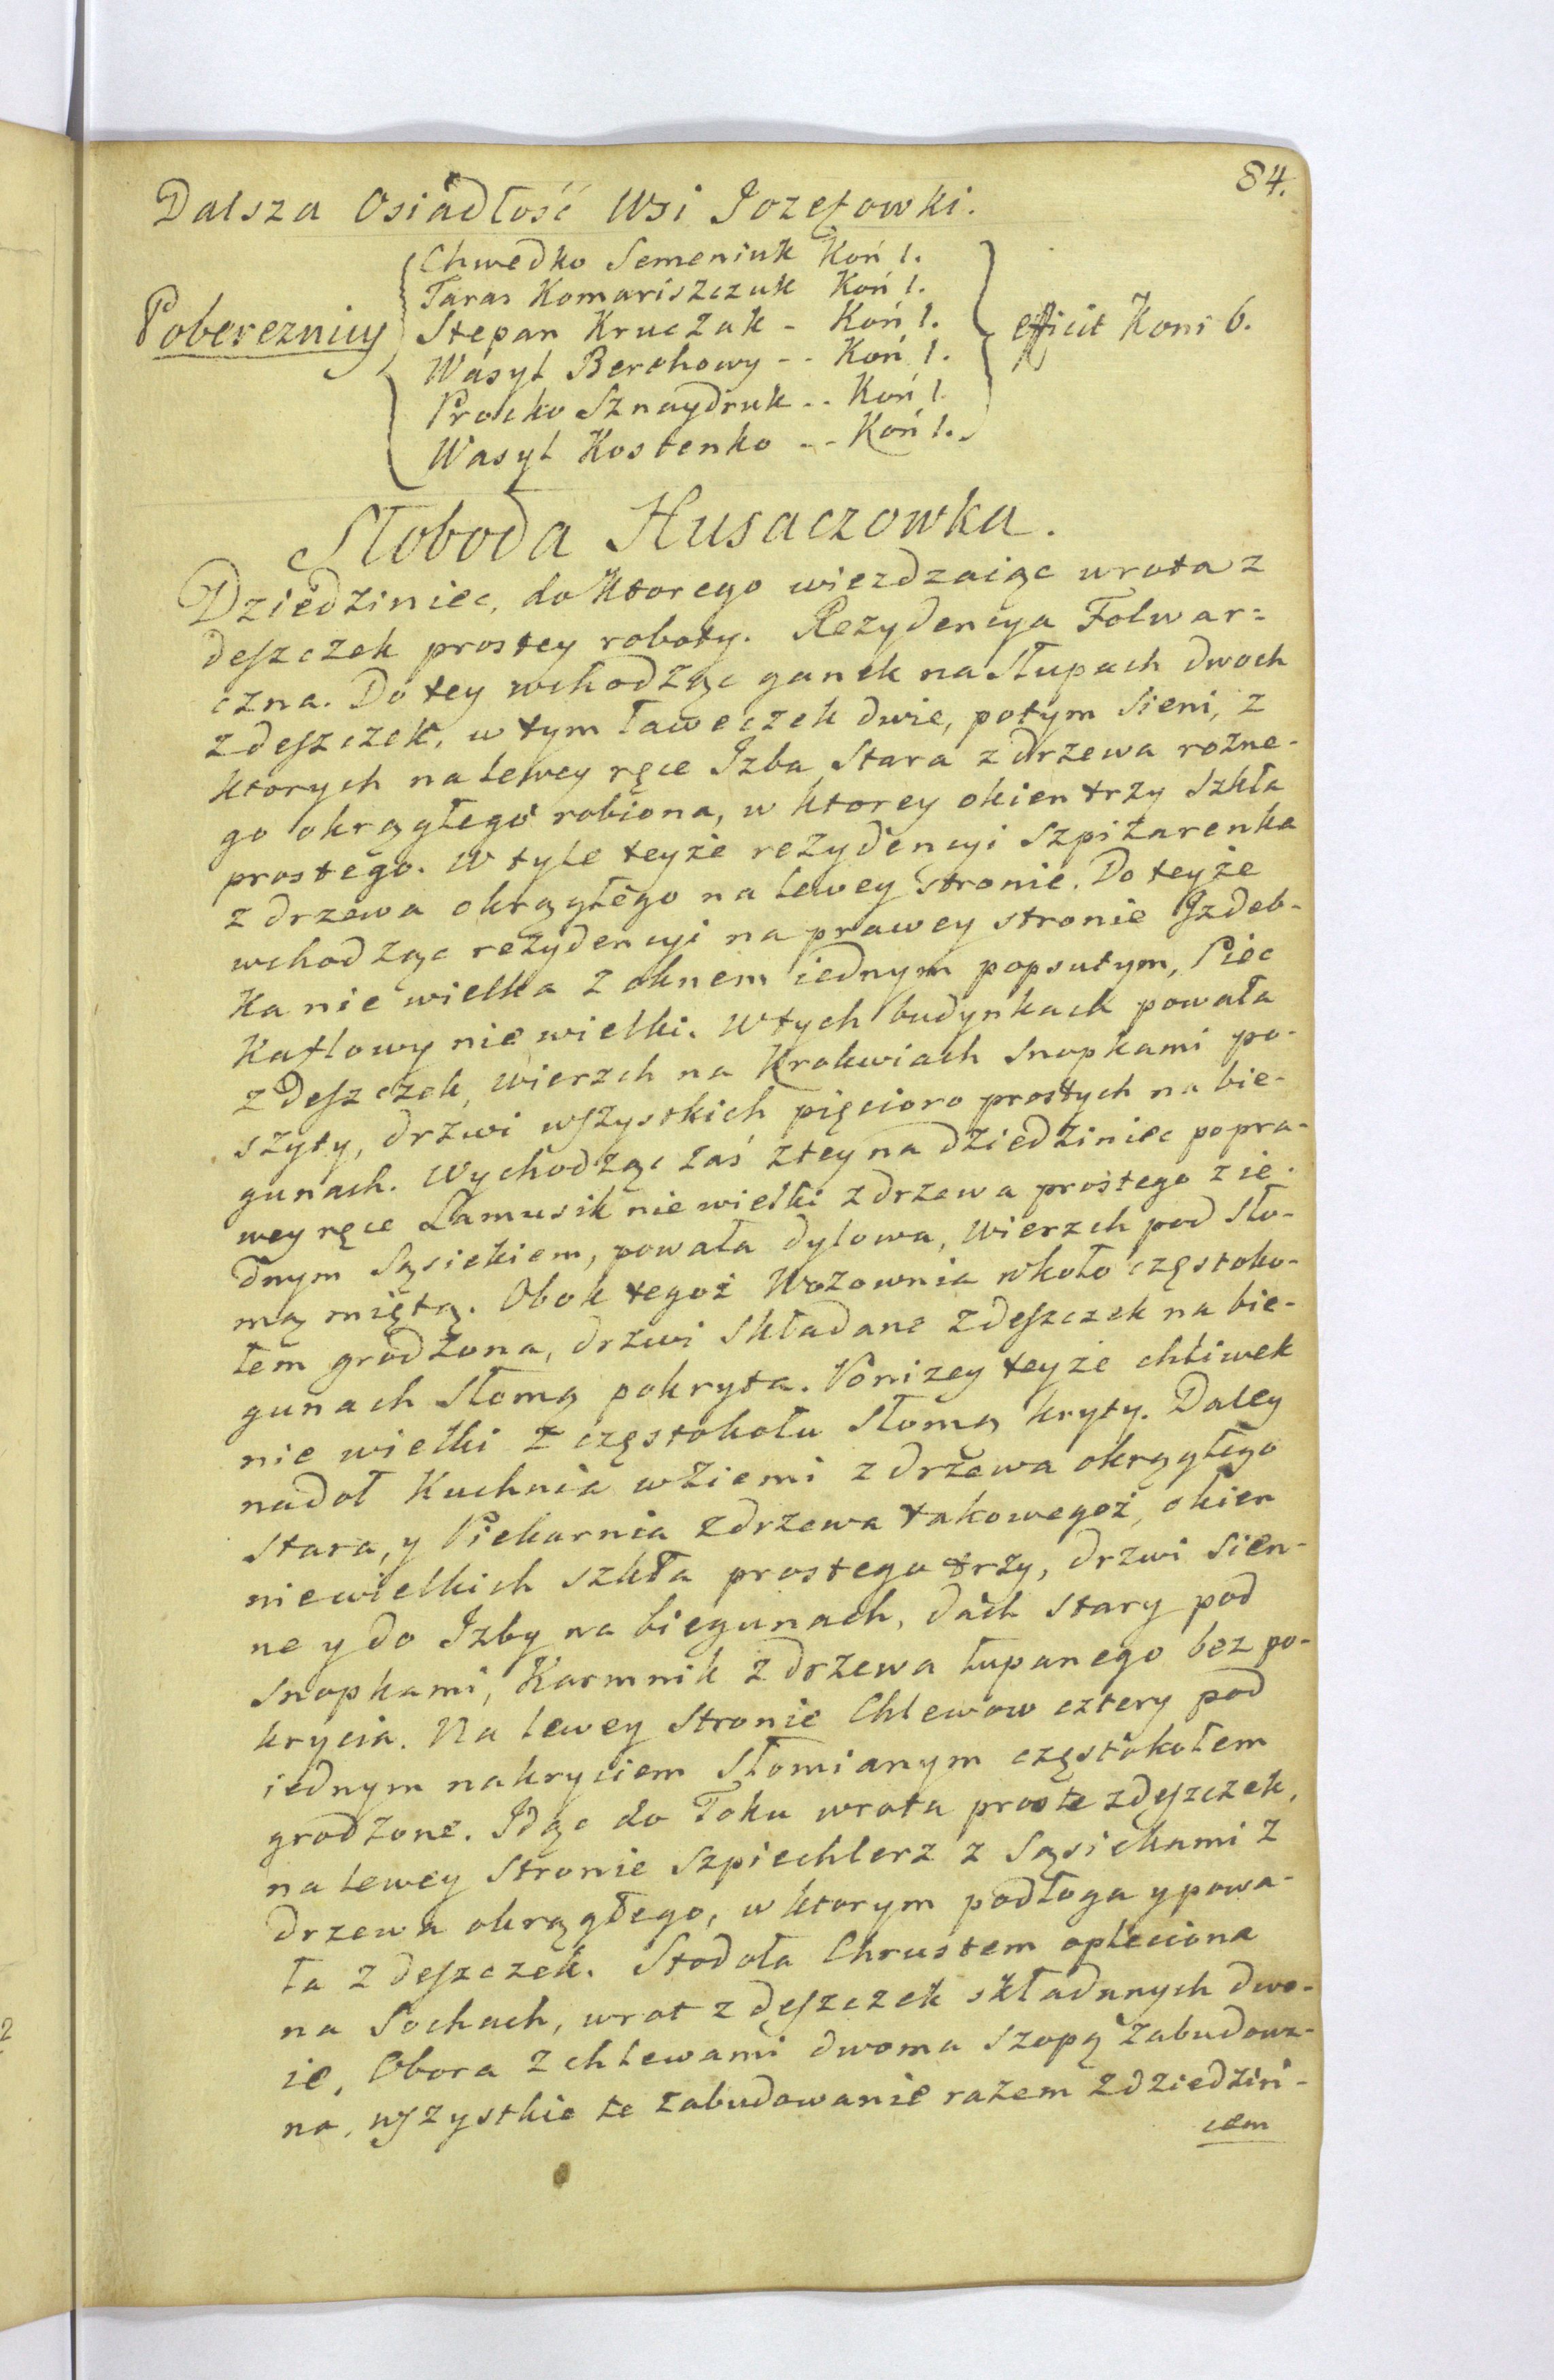 84.
Dalsza Osiadłość Wsi Jozefowki.
Pobereznicy
Chwedko Semeniuk Koń 1.
Taras Komariszczuk Koń 1.
Stepan Kruczak - Koń 1.
Wasyl Berehowy - - Koń 1.
Procko Sznaydruk - - Koń 1.
Wasyl Kostenko - - Koń 1.
efficit Koni 6.
Słoboda Husaczowka.
Dziedziniec, do ktorego wiezdzaiąc wrota z
deszczek prostey roboty. Rezydencya Folwar=
czna. Do tey wchodząc ganek na Słupach dwoch
z deszczek, w tym ławeczek dwie, potym Sieni, z
ktorych na lewey ręce Izba Stara z drzewa rożne-
go okrągłego robiona, w ktorey okien trzy Szkła
prostego. W tyle teyże rezydencyi Szpiżarenka
z drzewa okrągłego na lewey stronie. Do teyże
wchodząc rezydencyi na prawey stronie Izdeb-
ka nie wielka z oknem iednym popsutym, Piec
Kaflowy nie wielki. W tych budynkach powała
z deszczek, wierzch na Krokwiach snopkami po-
szyty, drzwi wszystkich pięcioro prostych na bie-
gunach. Wychodząc zaś z tey na dziedziniec po pra-
wey ręce Lamusik nie wielki z drzewa prostego z ie-
dnym Sąsiekiem, powała dylowa, wierzch pod Sło-
mą miętą. Obok tegoż Wozownia wkoło częstoko-
łem grodzona, drzwi Składane z deszczek na bie-
gunach Słomą pokryta. Poniżey teyże chliwek
nie wielki z częstokołu Słomą kryty. Daley
nadoł Kuchnia w Ziemi z drzewa okrągłego
Stara, y Piekarnia z drzewa takowegoż, okien
niewielkich szkła prostego trzy, drzwi Sien-
ne y do Izby na biegunach, dach stary pod
Snopkami, Karmnik z drzewa łupanego bez po-
krycia. Na lewey Stronie Chlewow cztery pod
iednym nakryciem Słomianym częstokołem
grodzone. Idąc do Toku wrota proste z deszczek,
na lewey Stronie Szpiechlerz z Sąsiekami z
drzewa okrągłego, w ktorym podłoga y powa-
ła z deszczek. Stodoła Chrustem opleciona
na Sochach, wrot z deszczek składanych dwo-
ie, Obora z chlewami dwoma szopą zabudowa-
na, wszystkie te zabudowanie razem z dziedziń-
cem